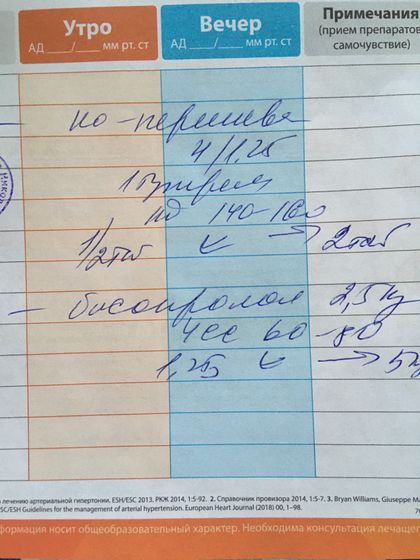 Утро
АД ____/____ мм рт. ст
Вечер
АД ____/____ мм рт. ст
Примечания
(прием препаратов
самочувствие)
– ко-перинева
4/1,25
1
АД 140-160
1/2таб ↙ → 2таб
– бисопролол 2,5
ЧСС 60-80
1,25 ↙ → 5
лечению артериальной гипертонии. ESH/ESC 2013. РКЖ 2014, 1:5-92. 2. Справочник провизора 2014, 1:5-7. 3. Bryan Williams, Giuseppe
SC/ESH Guidelines for the management of arterial hypertension. European Heart Journal (2018) 00, 1–98.
формация носит общеобразовательный характер. Необходима консультация лечащег